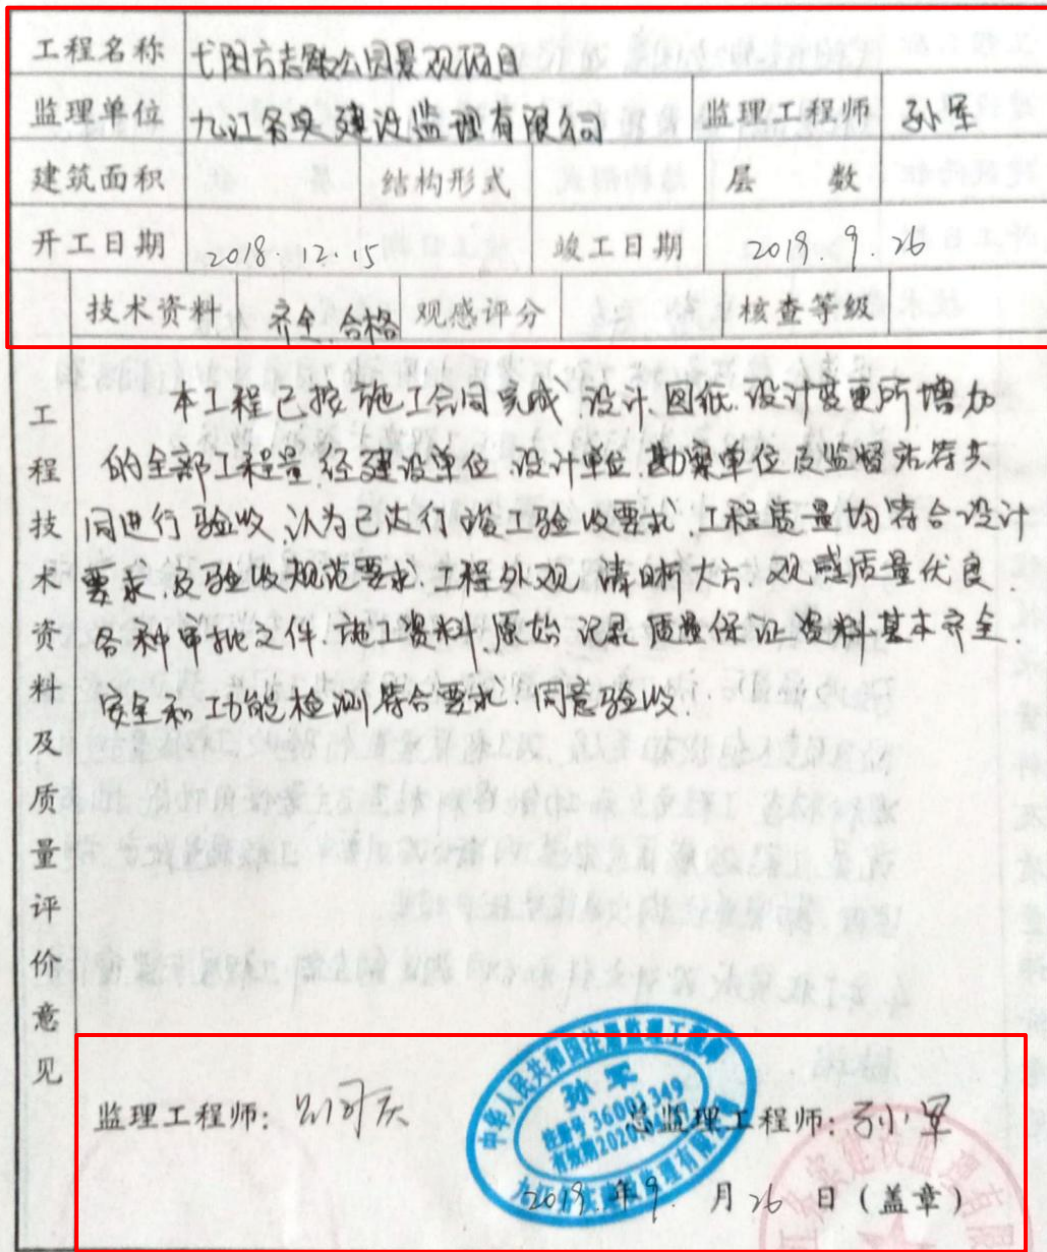 工程名称 弋阳方志敏公园景观项目
监理单位 九江务实建设监理有限公司 监理工程师 孙军
建筑面积 结构形式 层 数
开工日期 2018.12.15 竣工日期 2019.9.26
技术资料 齐全.合格 观感评分 核查等级
工程技术资料及质量评价意见
本工程已按施工合同完成.设计.图纸.设计变更所增加
的全部工程量.经建设单位.设计单位.勘察单位及监督站等共
同进行验收,认为已达行竣工验收要求.工程质量均符合设计
要求.及验收规范要求.工程外观.清晰大方.观感质量优良.
各种审批文件.施工资料.原始记录.质量保证资料基本齐全.
安全和功能检测符合要求.同意验收.
中华人民共和国注册监理工程师
孙 军
注册号 36001349
有效期2020
监理工程师: 总监理工程师: 孙军
2019 年 9. 月 26 日 (盖章)